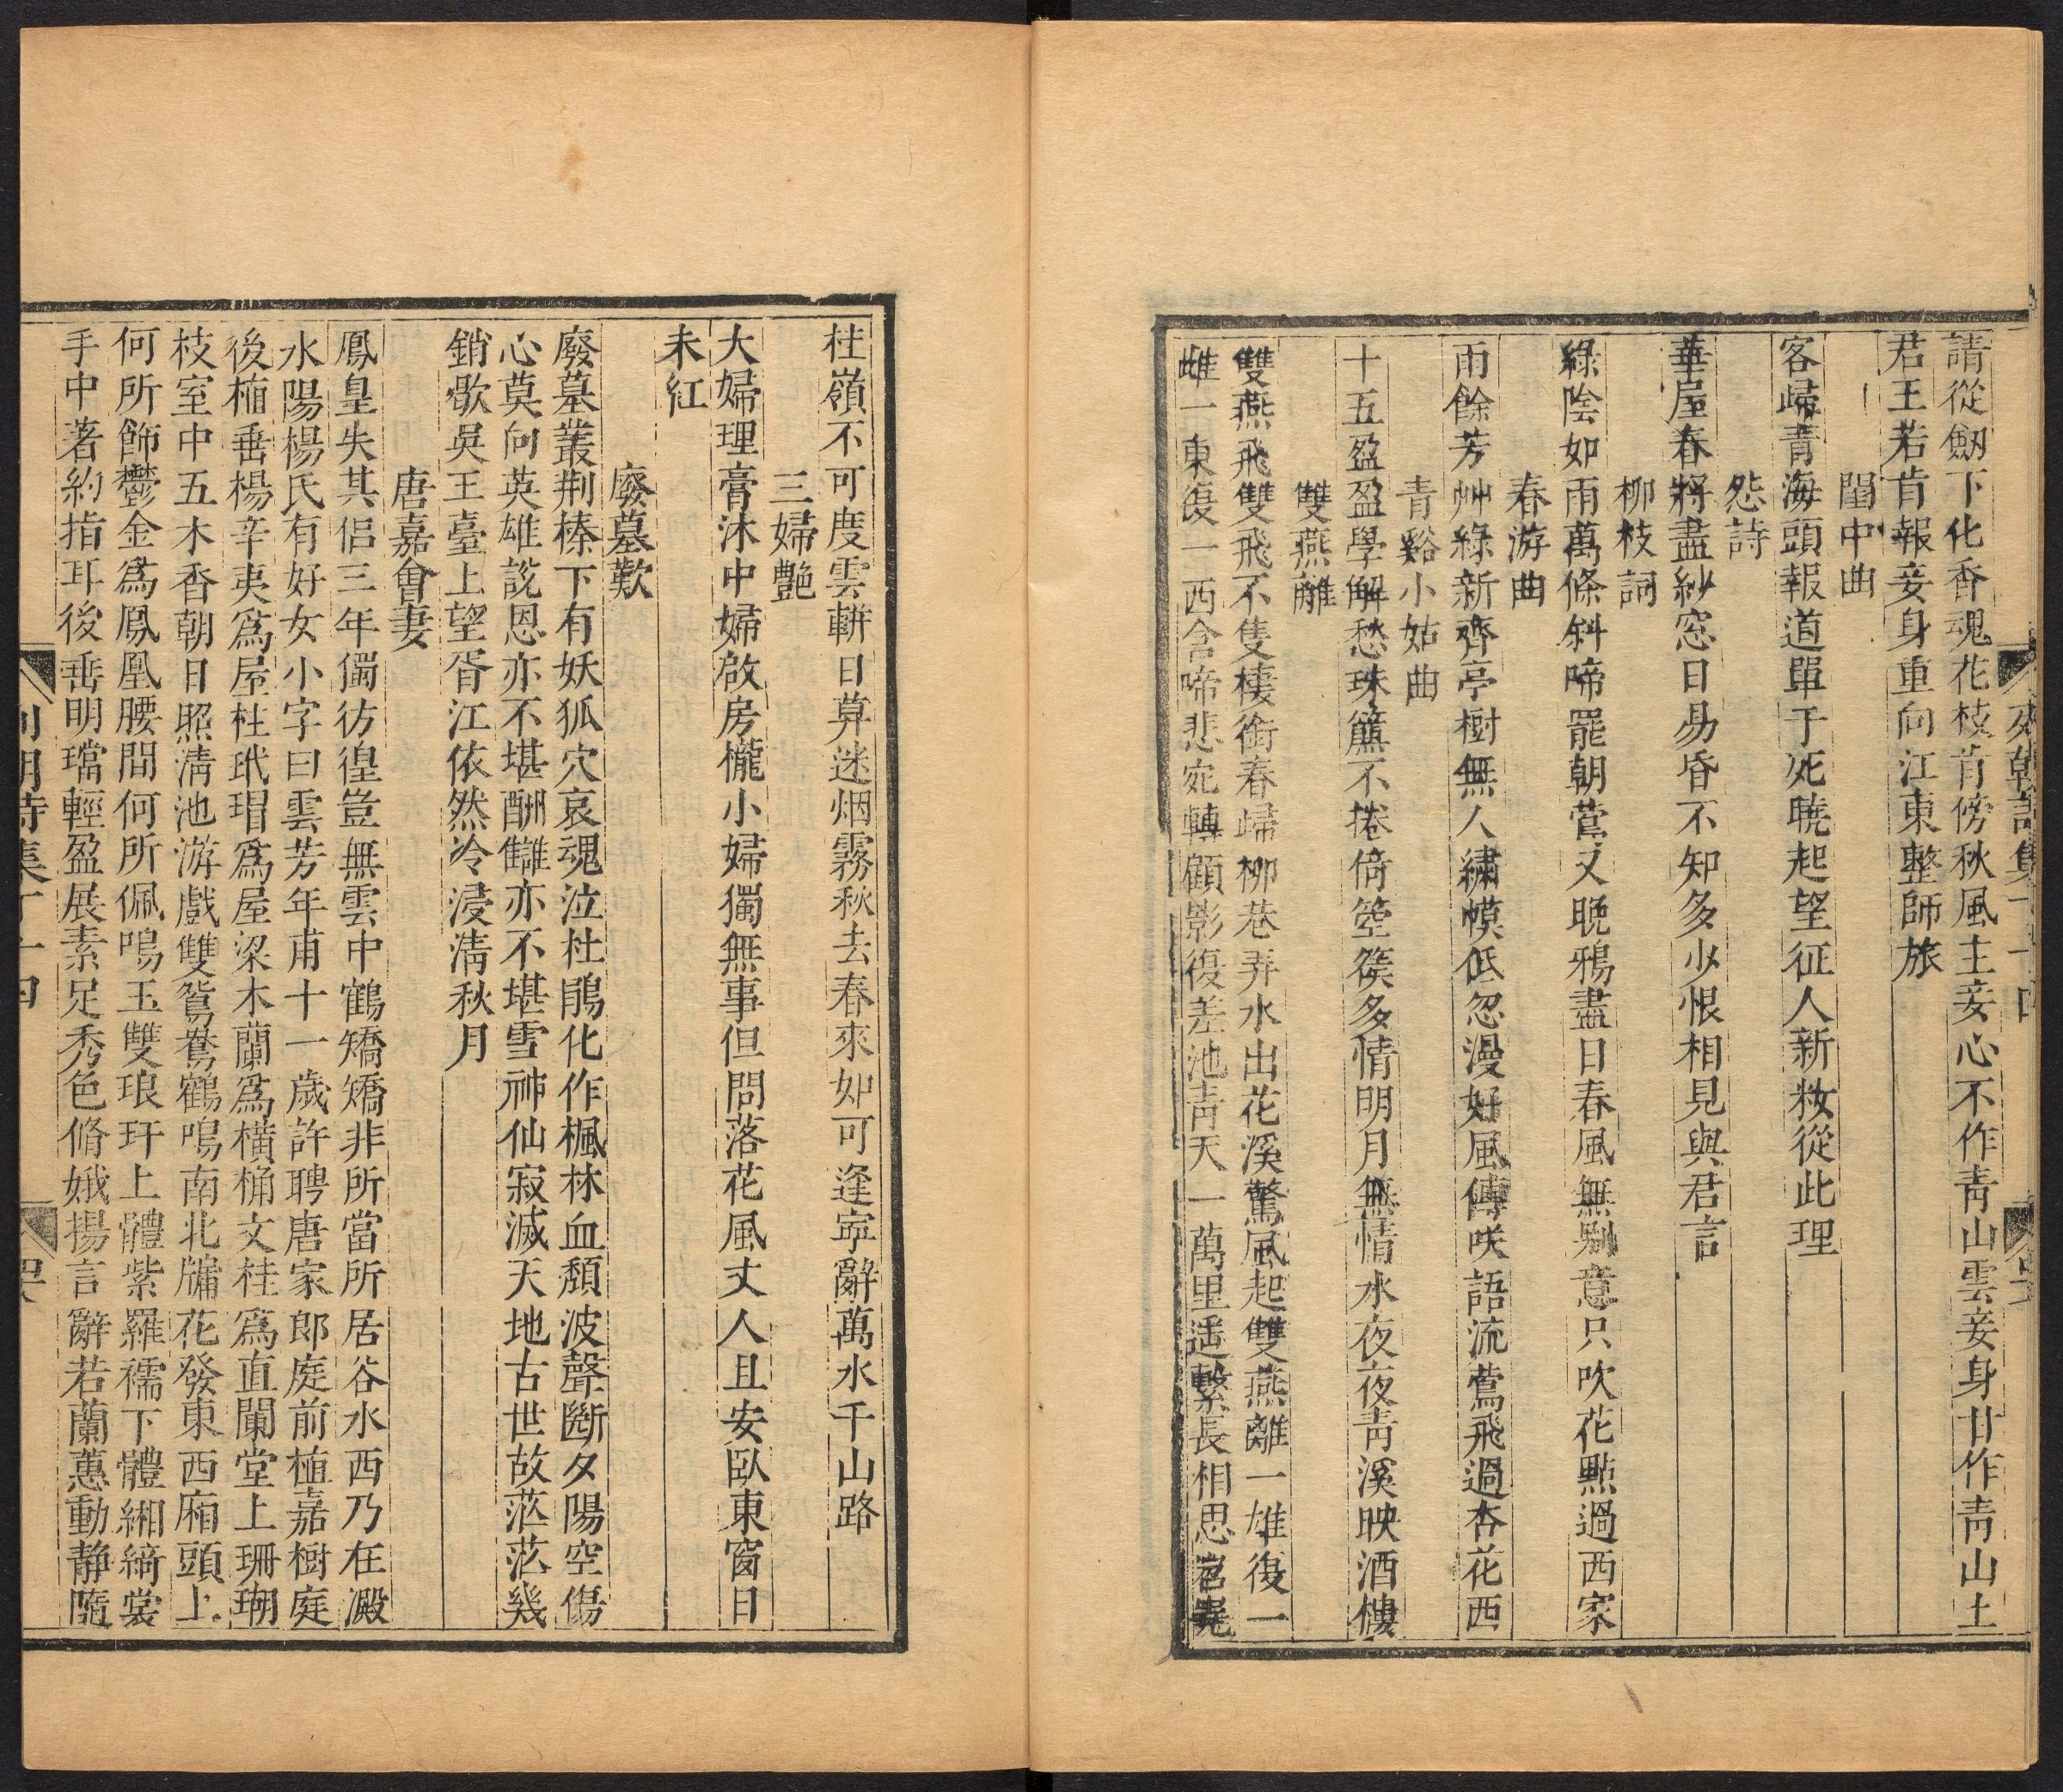 請從劒下化香魂花枝肯傍秋風主妾心不作靑山雲妾身甘作靑山土
君王若肯報妾身重向江東整師旅
閨中曲
客歸青海頭報道單于死曉起望征人新妝從此理
怨詩
華屋春將盡紗窓日易昏不知多少恨相見與君言
柳枝詞
綠陰如雨萬條斜啼罷朝鶯又晚鴉盡日春風無別意只吹花點過西家
春游曲
雨餘芳艸綠新齊亭樹無人繡幙低忽漫好風傳咲語流鶯飛過杏花西
青谿小姑曲
十五盈盈學解愁珠簾不捲倚箜篌多情明月無情水夜夜靑溪映酒樓
雙燕離
雙燕飛雙飛不隻棲銜春歸柳巷弄水出花溪驚風起雙燕離一雄復一
雌一東復一西含啼悲宛轉顧影復差池靑天一萬里遥繫長相思宮
桂嶺不可度雲輧日算迷烟霧秋去春來如可逢寧辭萬水千山路
三婦艷
大婦理膏沐中婦啟房櫳小婦獨無事但問落花風丈人且安臥東窗日
未紅
廢墓歎
廢墓叢荆榛下有妖狐穴哀魂泣杜鵑化作楓林血頹波聲斷夕陽空傷
心莫向英雄說恩亦不堪酬讎亦不堪雪神仙寂滅天地古世故茫茫幾
銷歇吳王臺上望胥江依然冷浸淸秋月
唐嘉會妻
鳳皇失其侣三年獨彷徨豈無雲中鶴矯矯非所當所居谷水西乃在澱
水陽楊氏有好女小字曰雲芳年甫十一歲許聘唐家郎庭前植嘉樹庭
後楠垂楊辛夷爲屋柱玳瑁爲屋梁木蘭爲横桷文桂爲直闌堂上珊瑚
枝室中五木香朝日照淸池游戲雙鴛鴦鶴鳴南北牖花發東西廂頭上
何所飾鬱金爲鳳凰腰間何所佩鳴玉雙琅玕上體紫羅襦下體緗綺裳
手中著約指耳後垂明璫輕盈展素足秀色脩娥揚言辭若蘭蕙動静隨